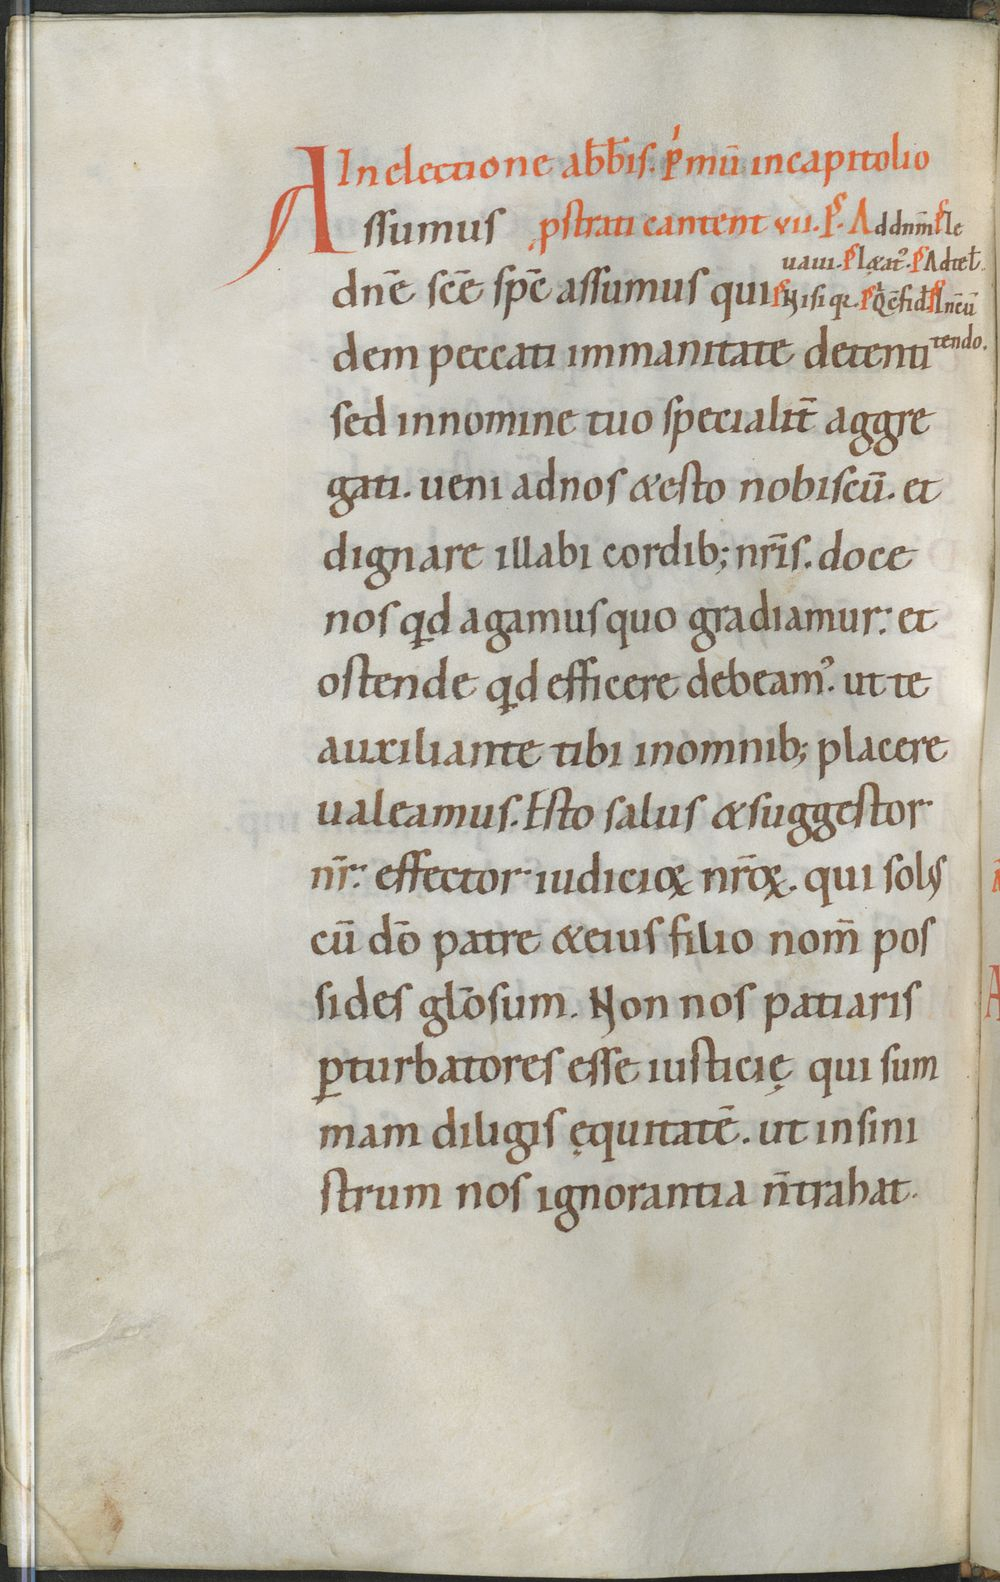 In electione abb̄is. p̍mū in capitolio
Assumus ꝓstrati cantent vii. P̄s. Ad dn̄m P̄s le
uaui. P̄s Lætatꝰ. P̄s Ad te l̄.
dn̄e sc̄e sp̄c assumus qui P̄s Nisi qͥ. P̄s Q̄ c̄fid̄ P̄s In c̄u
dem peccati immanitate detenti tendo.
sed in nomine tuo specialit̄ aggre
gati. ueni ad nos & esto nobiscū. et
dignare illabi cordib; nr̄is. doce
nos qͥd agamus quo gradiamur: et
ostende qͥd efficere debeamꝰ. ut te
auxiliante tibi in omnib; placere
ualeamus. Esto salus & suggestor
nr̄: effector iudicioꝝ nr̄oꝝ. qui solus
cū dō patre & eius filio nom̄ pos
sides gl̄osum. Non nos patiaris
ꝑturbatores esse iusticię qui sum
mam diligis ęquitatē. ut in sini
strum nos ignorantia n̄ trahat.